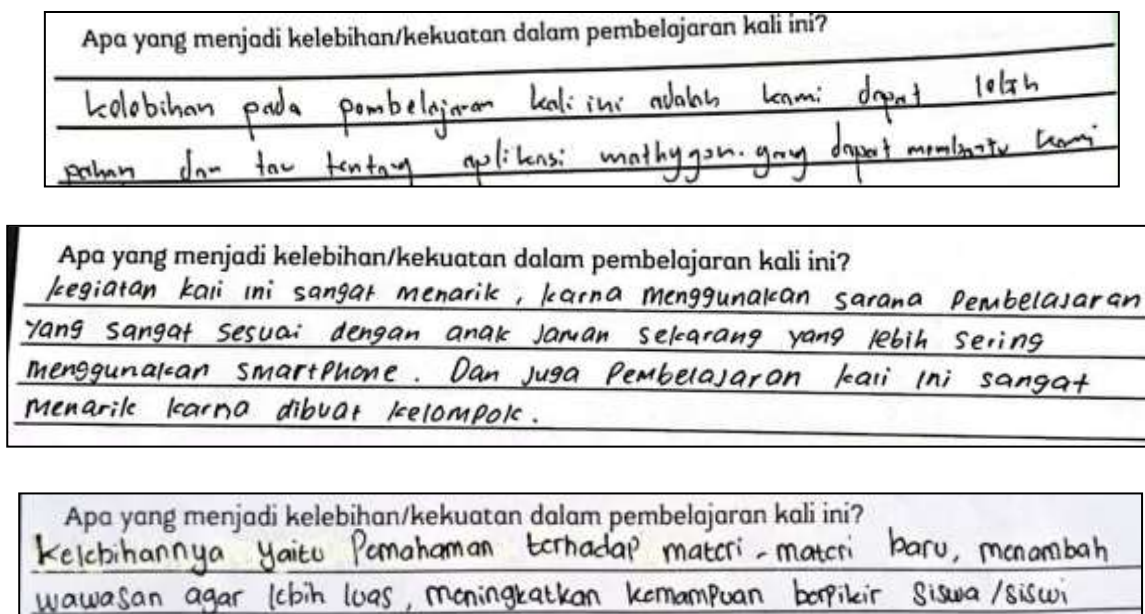 Apa yang menjadi kelebihan/kekuatan dalam pembelajaran kali ini?
kelebihan pada pembelajaran kali ini adalah kami dapat lebih
paham dan tau tentang aplikasi mathygon. yang dapat membantu kami
Apa yang menjadi kelebihan/kekuatan dalam pembelajaran kali ini?
kegiatan kali ini sangat menarik, karna menggunakan sarana Pembelajaran
Yang sangat sesuai dengan anak Jaman sekarang yang lebih sering
menggunakan smartPhone. Dan Juga Pembelajaran kali ini sangat
menarik karna dibuat kelompok.
Apa yang menjadi kelebihan/kekuatan dalam pembelajaran kali ini?
Kelebihannya yaitu Pemahaman terhadap materi-materi baru, menambah
wawasan agar lebih luas, meningkatkan kemampuan berpikir siswa/siswi